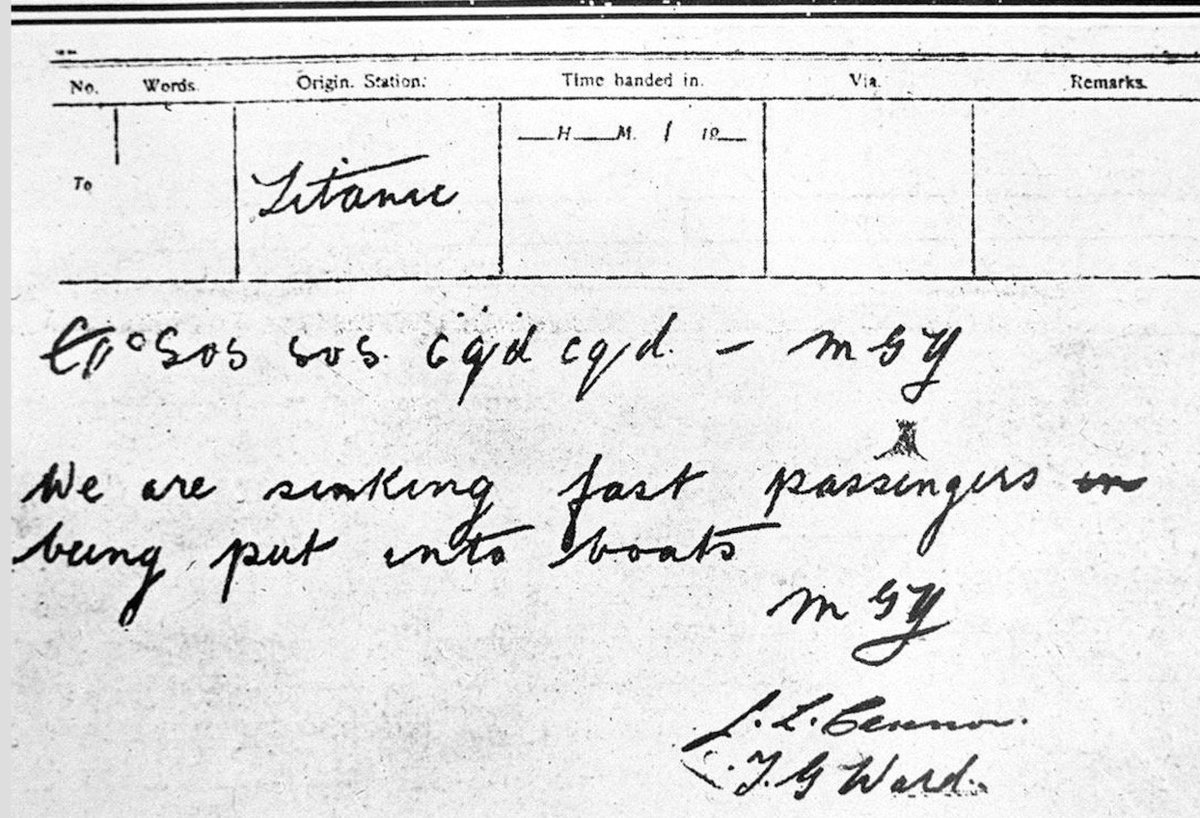 No. Words. Origin. Station. Time handed in. Via. Remarks.
H. M. / 19
To
Titanic
Sos sos. cqd cqd. - MGY
We are sinking fast passengers
being put into boats
MGY
L. Cannon.
T. G Ward.